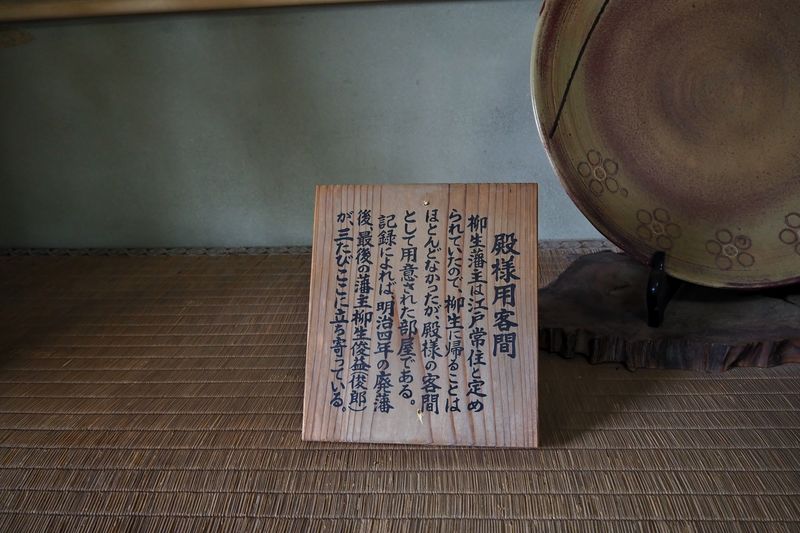 殿様用客間
柳生藩主は江戸常住と定め
られていたので、柳生に帰ることは
ほとんどなかったが、殿様の客間
として用意された部屋である。
記録によれば、明治四年の廃藩
後、最後の藩主柳生俊益(俊郎)
が、三たびここに立ち寄っている。